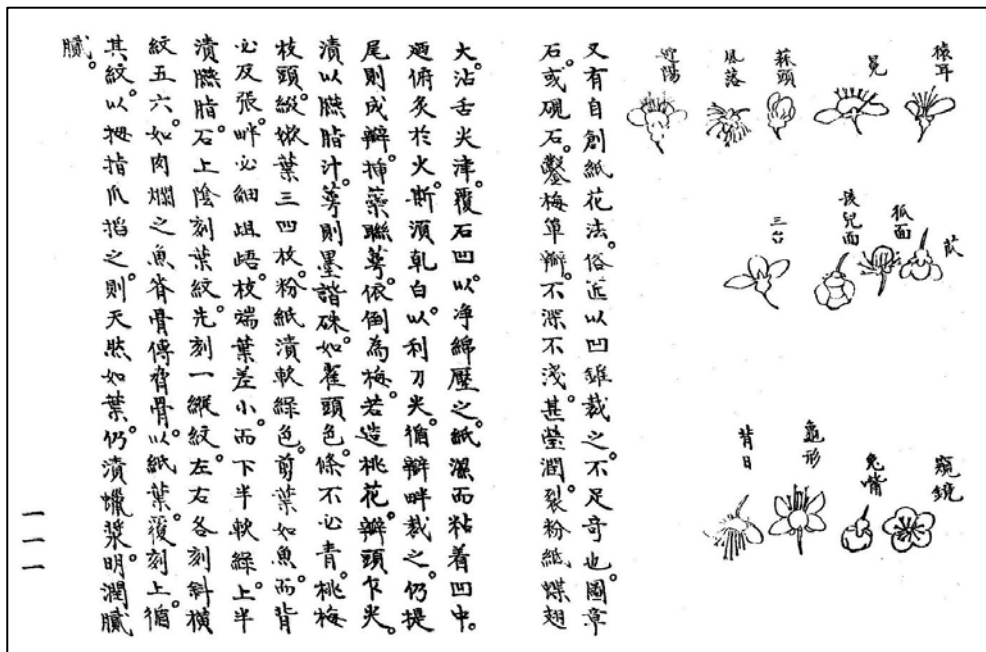 猿耳
冕
蒜頭
風落
迎陽
狐面
孩兒面
三台
窺鏡
兔嘴
龜形
背日
又有自創紙花法。俗近以凹錐裁之。不足奇也。圖章
石。或硯石。鑿梅單瓣。不深不淺。甚瑩潤。裂粉紙。蝶翅
大。沾舌尖津。覆石凹。以净綿壓之。紙濕而粘着凹中。
廼俯炙於火。斯須乾白。以利刀尖。循瓣畔裁之。仍提
尾則成瓣。揷蘂聯萼。依倒為梅。若造桃花。瓣頭乍尖。
漬以臙脂汁。萼則墨諧硃。如雀頭色。條不必青。桃梅
枝頭。綴嫩葉三四枝。粉紙漬軟綠色。剪葉如魚。而背
必反張。畔必細齟齬。枝端葉差小。而下半軟綠。上半
漬臙脂。石上陰刻葉紋。先刻一縱紋。左右各刻斜橫
紋五六。如肉爛之魚脊骨傳脅骨。以紙葉。覆刻上。循
其紋。以拇指爪搯之。則天然如葉。仍漬蠟漿。明潤膩
膩。
一一一